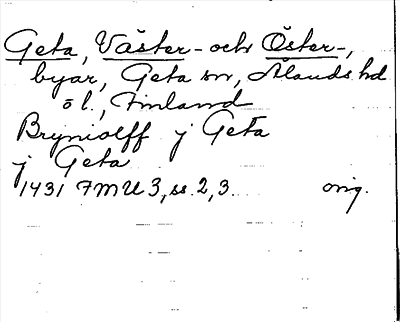 Geta, Väster- och Öster-,
byar, Geta sn, Ålands hd
o l., Finland
Bryniolff j Geta
j Geta
1431 FMU 3, ss. 2, 3. orig.